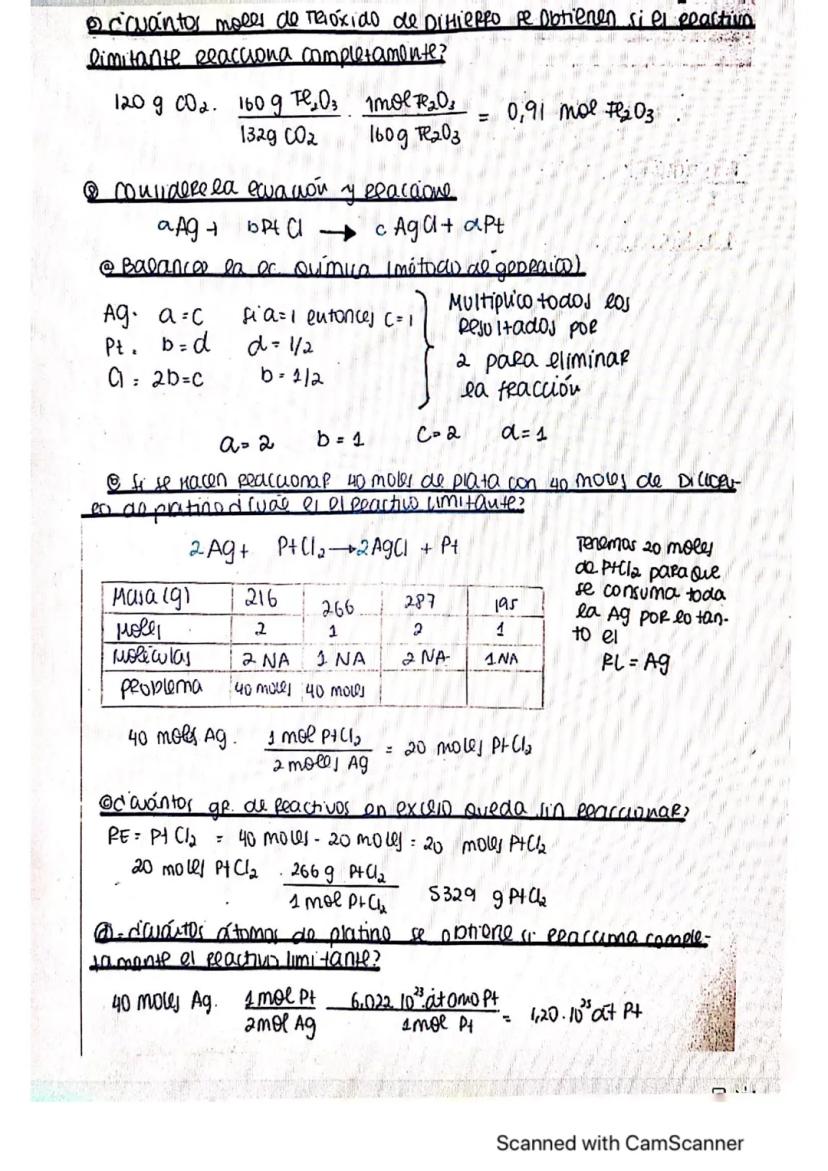 ⓔ ¿Cuántos moles de Trióxido de DiHierro se obtienen si el reactivo
limitante reacciona completamente?
120 g CO₂ . 160 g Fe₂O₃ / 132g CO₂ . 1mol Fe₂O₃ / 160g Fe₂O₃ = 0,91 mol Fe₂O₃ .
② Considere la ecuación y reaccione
aAg + bPtCl → c AgCl + dPt
ⓐ Balancee la ec. química (método algebraico)
Ag. a=c Si a=1 entonces c=1
Pt. b=d d=1/2
Cl : 2b=c b=1/2
Multiplico todos los
resultados por
2 para eliminar
la fracción
a=2 b=1 c=2 d=1
ⓑ Si se hacen reaccionar 40 moles de plata con 40 moles de Diclor-
ro de platino ¿Cuál es el reactivo limitante?
2Ag + PtCl₂ → 2AgCl + Pt
Masa (g) 216 266 287 195
Moles 2 1 2 1
Moléculas 2 NA 1 NA 2 NA 1NA
Problema 40 moles 40 moles
Tenemos 20 moles
de PtCl₂ para que
se consuma toda
la Ag por lo tan-
to el
RL = Ag
40 moles Ag . 1 mol PtCl₂ / 2 moles Ag = 20 moles PtCl₂
ⓒ ¿Cuántos gr. de reactivos en exceso queda sin reaccionar?
RE = PtCl₂ = 40 moles - 20 moles = 20 moles PtCl₂
20 moles PtCl₂ . 266 g PtCl₂ / 1 mol PtCl₂ 5329 g PtCl₂
ⓓ ¿Cuántos átomos de platino se obtiene si reacciona comple-
tamente el reactivo limitante?
40 moles Ag. 1 mol Pt / 2mol Ag 6,022 10²³ átomo Pt / 1mol Pt = 1,20.10²⁵ at Pt
Scanned with CamScanner